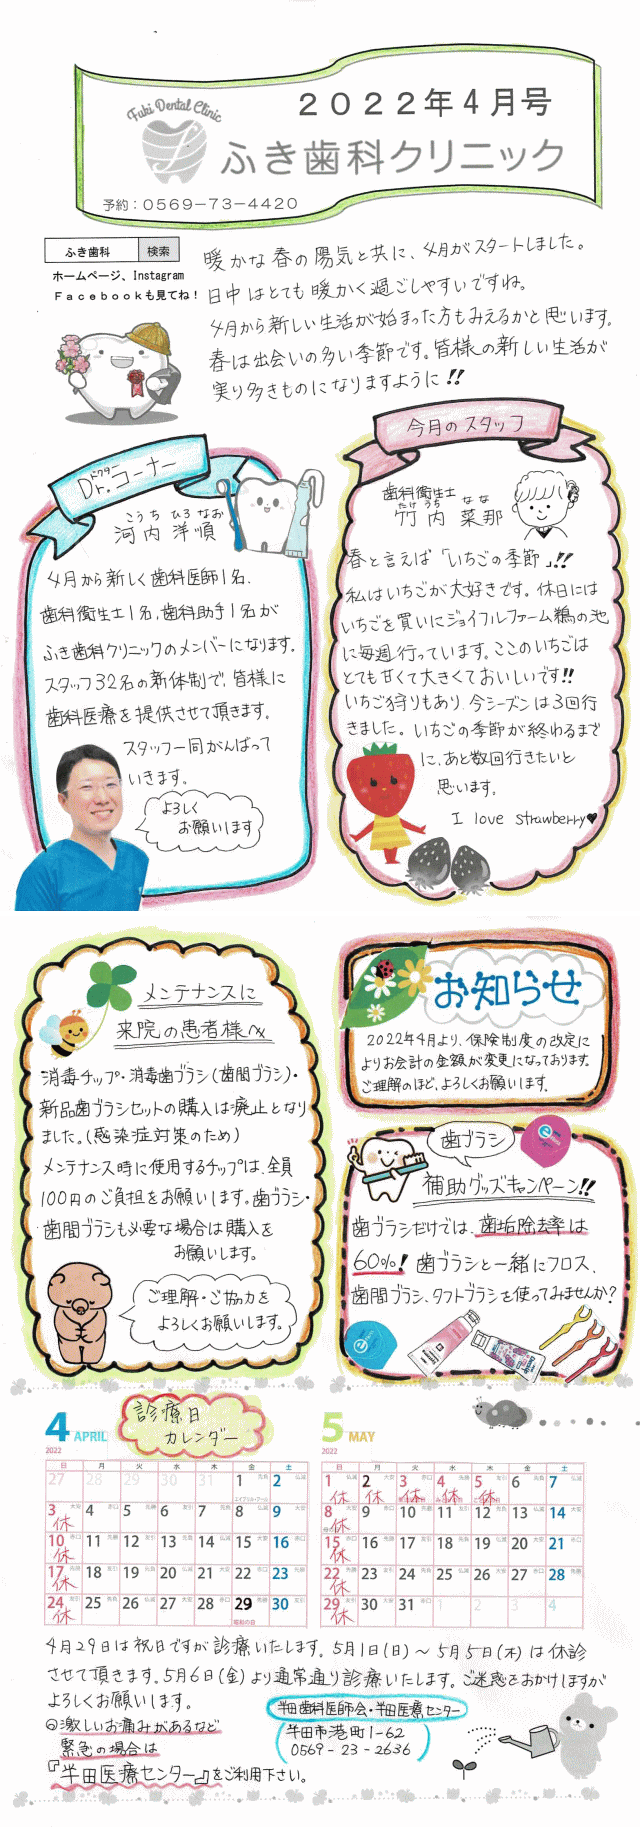 Fuki Dental Clinic
2022年4月号
ふき歯科クリニック
予約：0569－73－4420
ふき歯科 検索
ホームページ、Instagram
Facebookも見てね！
暖かな春の陽気と共に、4月がスタートしました。
日中はとても暖かく過ごしやすいですね。
4月から新しい生活が始まった方もみえるかと思います。
春は出会いの多い季節です。皆様の新しい生活が
実り多きものになりますように!!
ドクター
Dr.コーナー
こうち ひろなお
河内 洋順
4月から新しく歯科医師1名、
歯科衛生士1名、歯科助手1名が
ふき歯科クリニックのメンバーになります。
スタッフ32名の新体制で、皆様に
歯科医療を提供させて頂きます。
スタッフ一同がんばって
いきます。
よろしく
お願いします
今月のスタッフ
歯科衛生士
たけうち なな
竹内 菜那
春と言えば「いちごの季節」!!
私はいちごが大好きです。休日には
いちごを買いにジョイフルファーム鵜の池
に毎週行っています。ここのいちごは
とても甘くて大きくておいしいです!!
いちご狩りもあり、今シーズンは3回行
きました。いちごの季節が終わるまで
に、あと数回行きたいと
思います。
I love strawberry♥
メンテナンスに
来院の患者様へ
消毒チップ・消毒歯ブラシ(歯間ブラシ)・
新品歯ブラシセットの購入は廃止となり
ました。(感染症対策のため)
メンテナンス時に使用するチップは、全員
100円のご負担をお願いします。歯ブラシ・
歯間ブラシも必要な場合は購入を
お願いします。
ご理解・ご協力を
よろしくお願いします。
お知らせ
2022年4月より、保険制度の改定に
よりお会計の金額が変更になっております。
ご理解のほど、よろしくお願いします。
歯ブラシ
補助グッズキャンペーン!!
歯ブラシだけでは、歯垢除去率は
60%！歯ブラシと一緒にフロス、
歯間ブラシ、タフトブラシを使ってみませんか？
診療日
カレンダー
4 APRIL
2022
日 月 火 水 木 金 土
27 28 29 30 31 1 2
3 4 5 6 7 8 9
休
10 11 12 13 14 15 16
休
17 18 19 20 21 22 23
休
24 25 26 27 28 29 30
休 昭和の日
5 MAY
2022
日 月 火 水 木 金 土
1 2 3 4 5 6 7
休 休 休 休 休
8 9 10 11 12 13 14
休
15 16 17 18 19 20 21
休
22 23 24 25 26 27 28
休
29 30 31 1 2 3 4
休
4月29日は祝日ですが診療いたします。5月1日(日)～5月5日(木)は休診
させて頂きます。5月6日(金)より通常通り診療いたします。ご迷惑をおかけしますが
よろしくお願いします。
◎激しいお痛みがあるなど
緊急の場合は
『半田医療センター』をご利用下さい。
半田歯科医師会・半田医療センター
半田市港町1-62
0569-23-2636